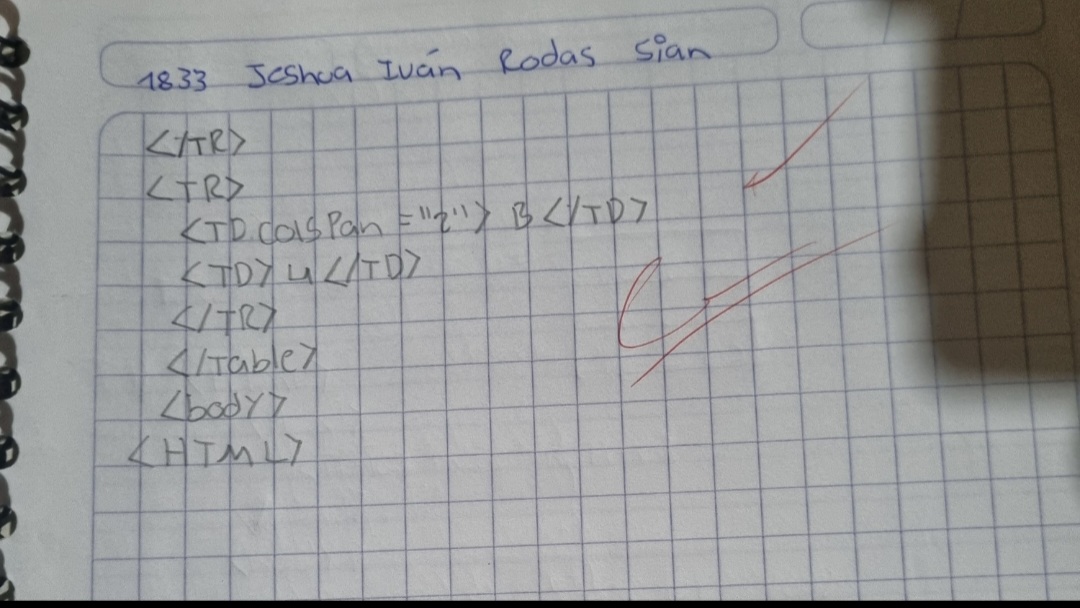 1833 Jeshua Iván Rodas Sian
</TR>
<TR>
<TD colspan="2"> B </TD>
<TD> 4 </TD>
</TR>
</Table>
<body>
<HTML>